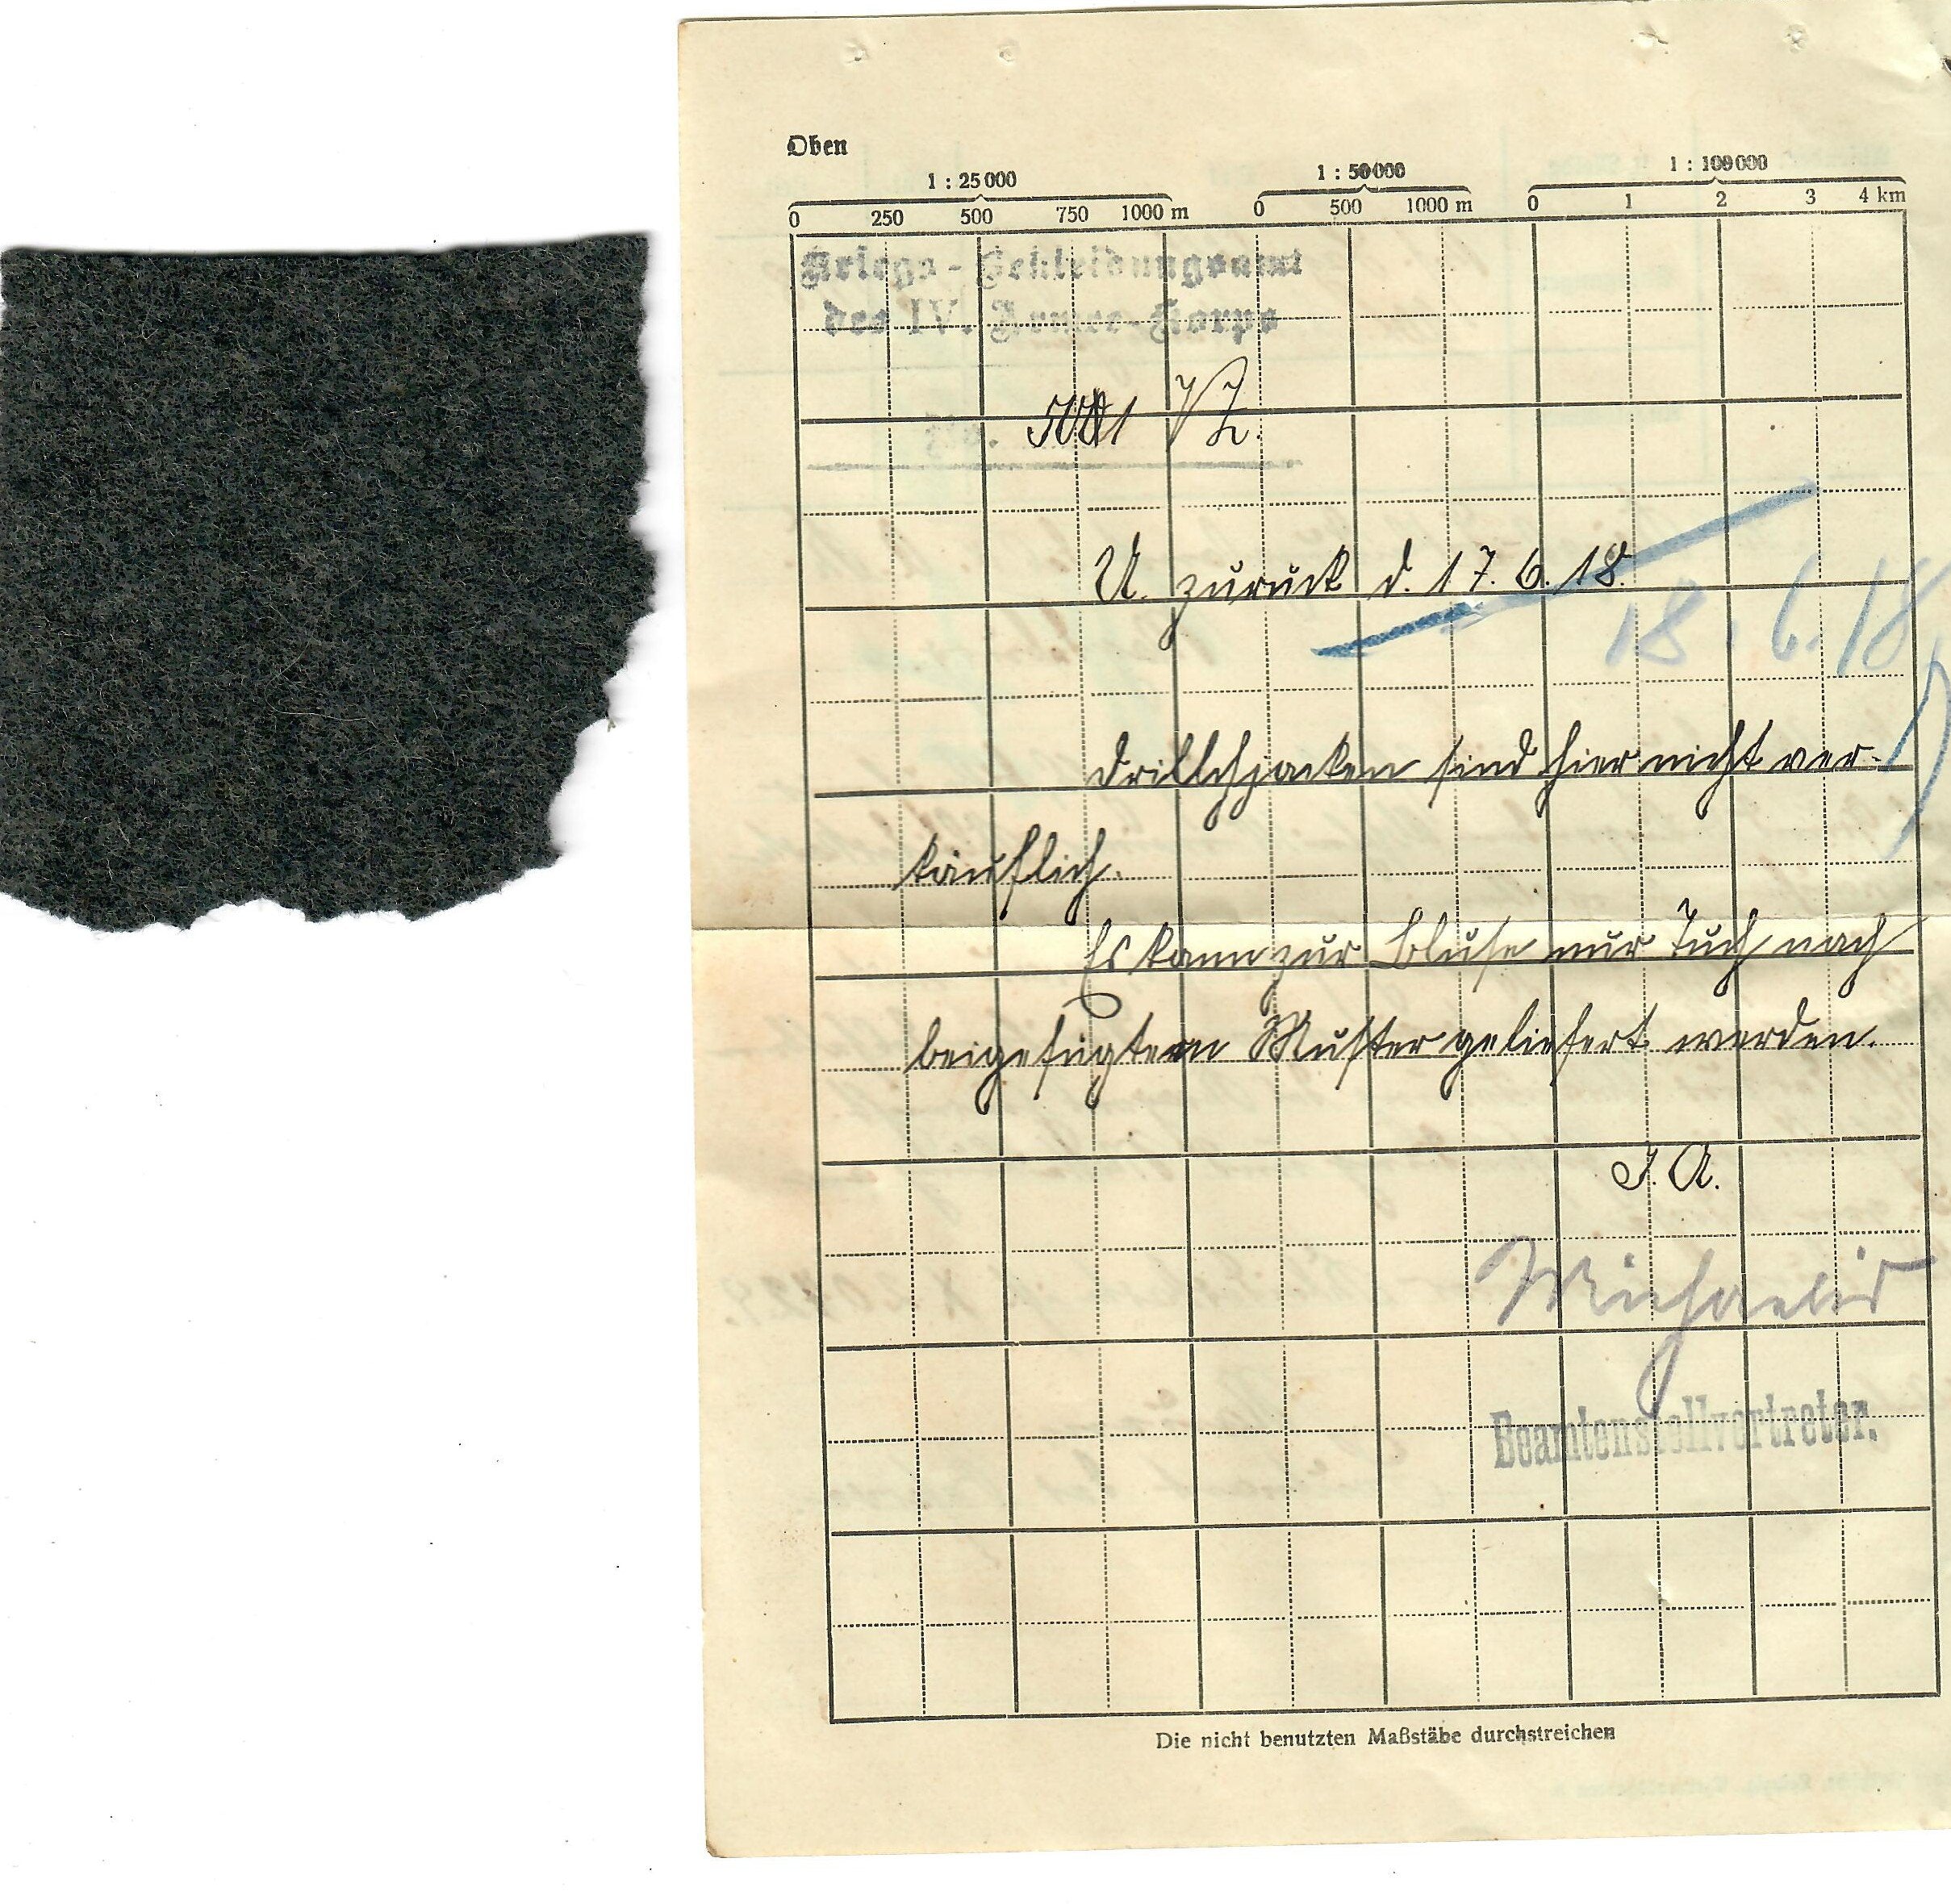 Oben
1 : 25 000 1 : 50 000 1 : 100 000
0 250 500 750 1000 m 0 500 1000 m 0 1 2 3 4 km
Kriegs-Bekleidungsamt
des IV. Armee-Korps
No.
U. zurück d. 17. 6. 18.
18. 6. 18
Drillichjacken sind hier nicht ver-
käuflich.
Es kann zur Bluse nur Tuch nach
beigefügtem Muster geliefert werden.
I. A.
Michaelis
Beamtenstellvertreter.
Die nicht benutzten Maßstäbe durchstreichen